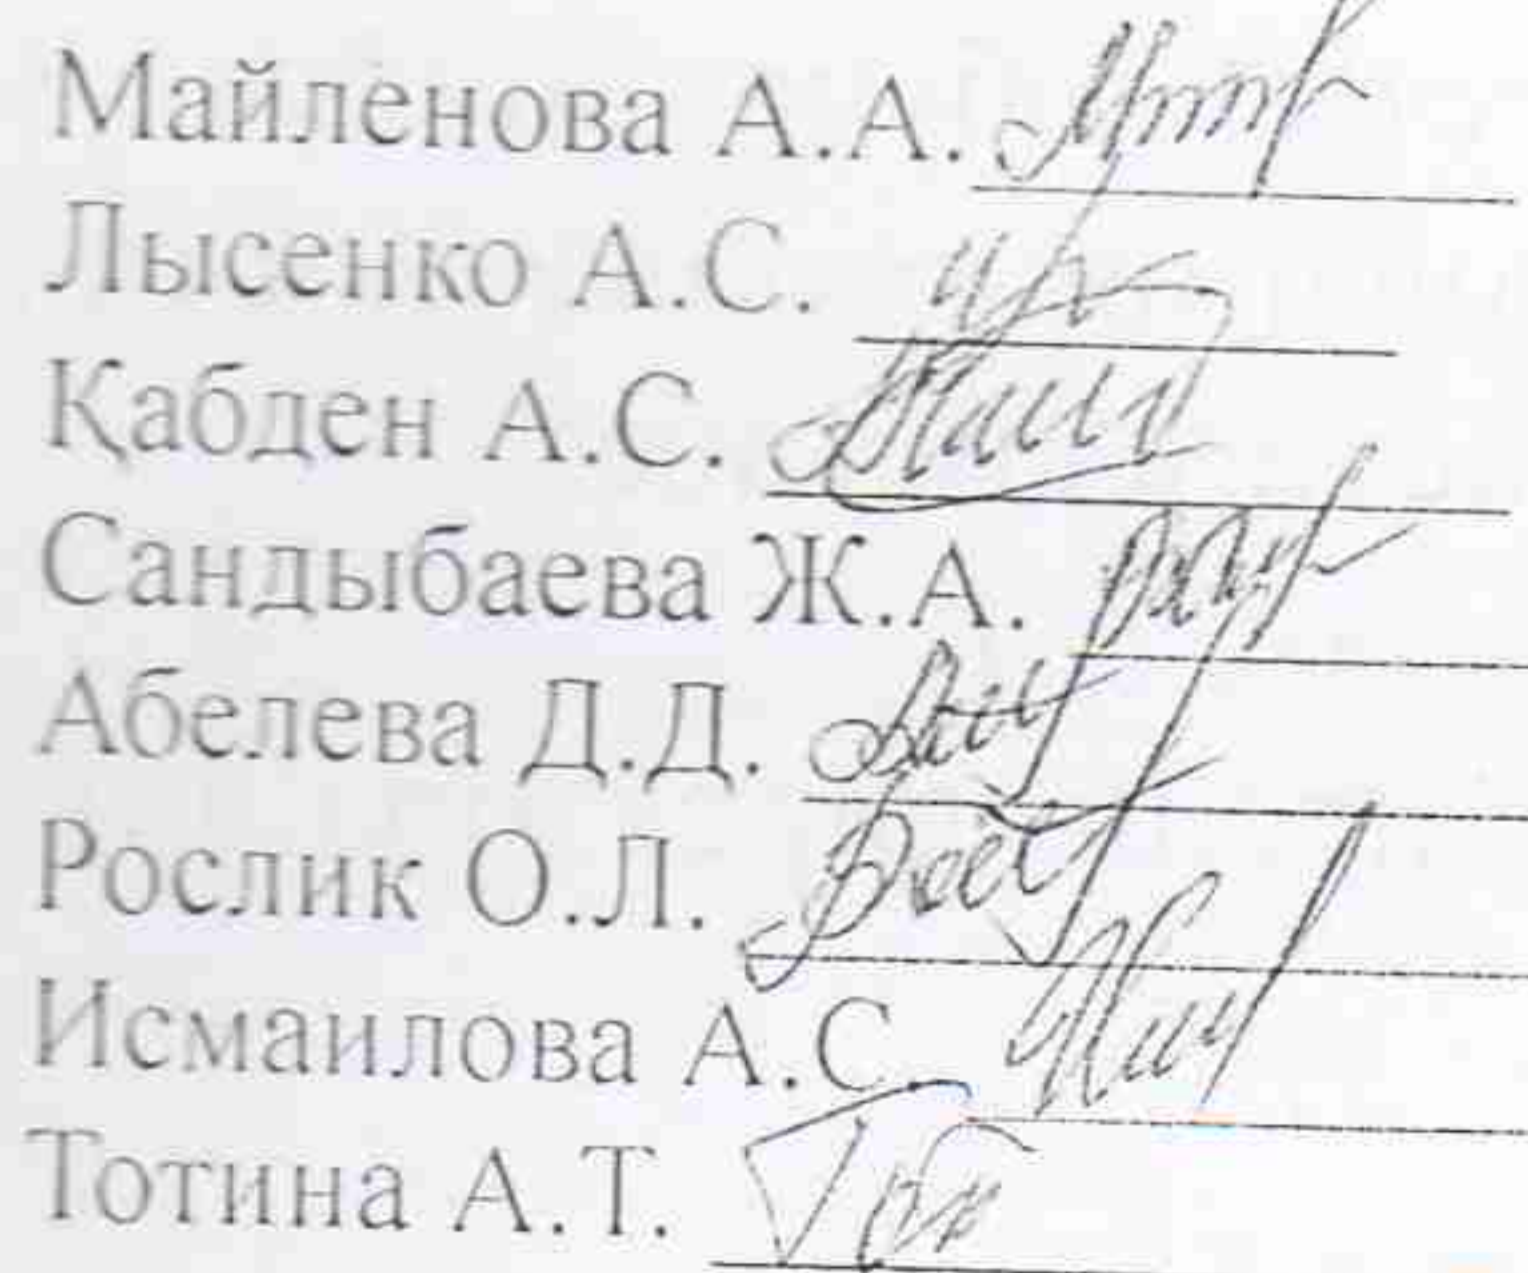 Майленова А.А.
Лысенко А.С.
Қабден А.С.
Сандыбаева Ж.А.
Абелева Д.Д.
Рослик О.Л.
Исмаилова А.С
Тотина А.Т.